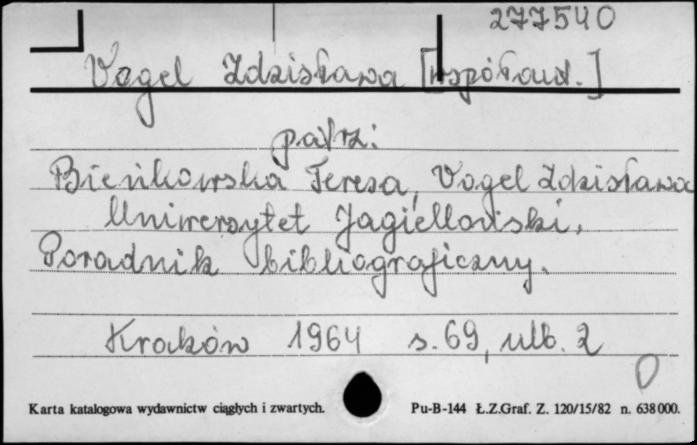 277540
Vogel Zdzisława [współaut.]
patrz:
Bieńkowska Teresa, Vogel Zdzisława
Uniwersytet Jagielloński.
Poradnik bibliograficzny.
Kraków 1964 s. 69, nlb. 2
0
Karta katalogowa wydawnictw ciągłych i zwartych. Pu-B-144 Ł.Z.Graf. Z. 120/15/82 n. 638000.